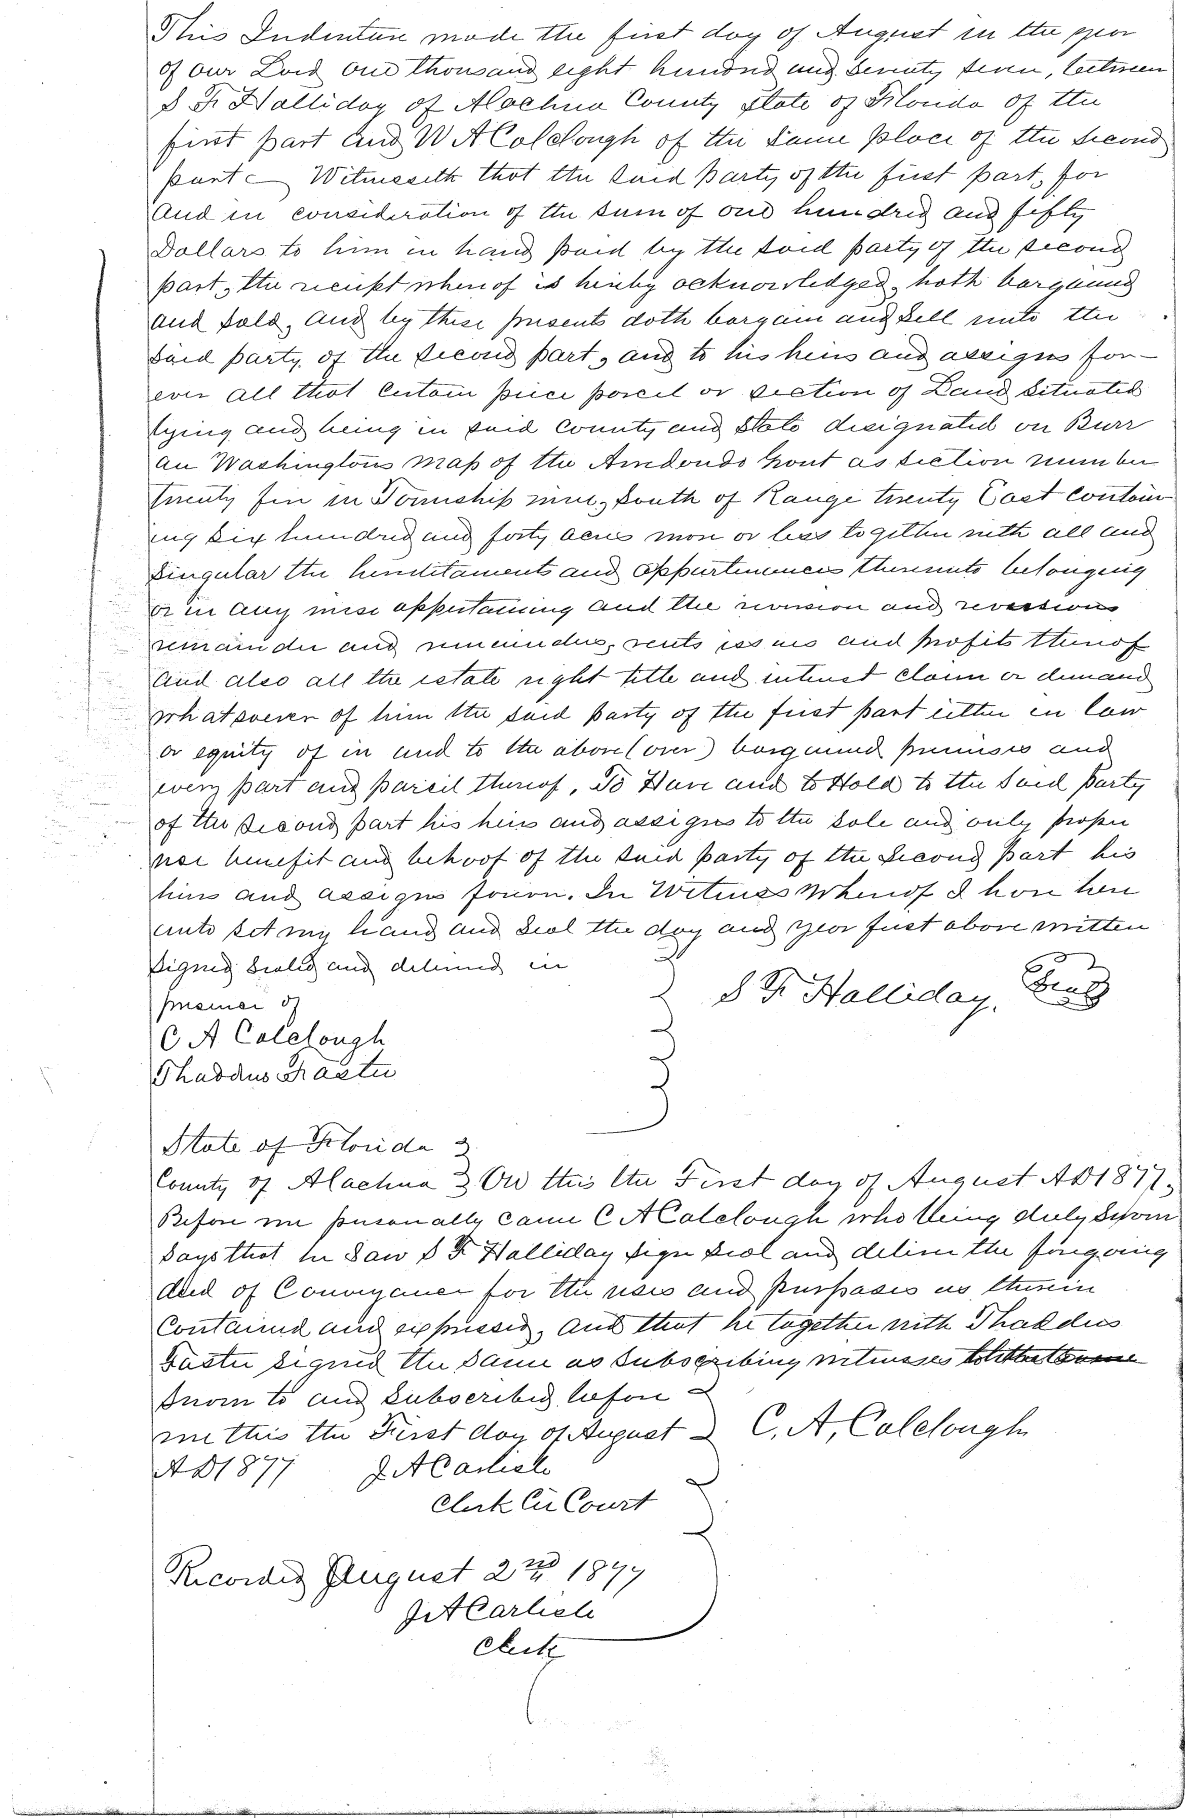 This Indenture made the first day of August in the year
of our Lord one thousand eight hundred and Seventy Seven, between
S F Halliday of Alachua County State of Florida of the
first part and W A Colclough of the Same place of the Second
part Witnesseth that the Said Party of the first part, for
and in consideration of the Sum of one hundred and fifty
Dollars to him in hand paid by the Said party of the second
part, the receipt whereof is hereby acknowledged, hath bargained
and Sold, and by these presents doth bargain and Sell unto the
Said party, of the Second part, and to his heirs and assigns for-
ever all that Certain piece parcel or section of Land Situated
lying and being in said County and State designated on Burr
an Washingtons Map of the Arredondo Grant as Section number
twenty five in Township nine, South of Range twenty East Contain
ing Six hundred and forty acres more or less together with all and
Singular the hereditaments and appurtenances thereunto belonging
or in any wise appertaining and the reversion and reversions
remainder and remainders, rents issues and profits thereof
and also all the estate right title and interest claim or demand
whatsoever of him the Said Party of the first part either in law
or equity of in and to the above (over) bargained premises and
every part and parcil thereof, To Have and to Hold to the Said Party
of the Second part his heirs and assigns to the Sole and only proper
use benefit and behoof of the Said party of the Second Part his
heirs and assigns forever. In Witness Whereof I have here
unto Set my hand and Seal the day and year first above written
Signed Sealed and delivered in
presence of
S F Halliday, Seal
C A Colclough
Thaddus
State of Florida
County of Alachua On this the First day of August AD 1877,
Before me personally came C A Colclough who being duly Sworn
Says that he Saw S F Halliday Sign Seal and deliver the foregoing
deed of Conveyance for the uses and purposes as therein
Contained and expressed, and that he together with Thaddus
Signed the Same as Subscribing witnesses
Sworn to and Subscribed before
me this the First day of August C. A. Colclough
AD 1877 J A Carlisle
Clerk Cir Court
Recorded August 2nd 1877
J A Carlisle
Clerk